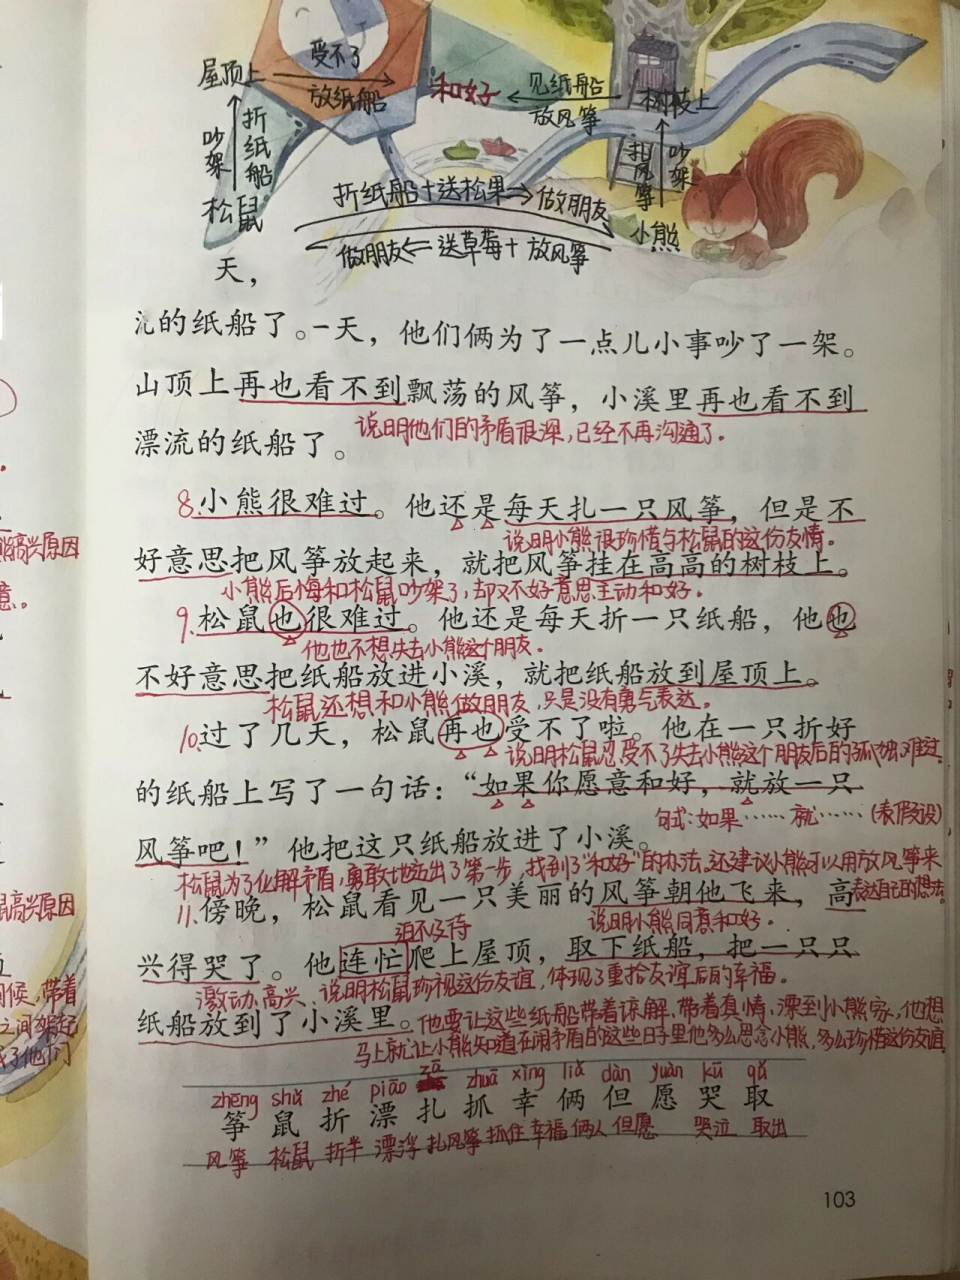 屋顶上 受不了 放纸船 和好 见纸船 放风筝 树枝上
吵架 折纸船 扎风筝 吵架
松鼠 折纸船+送松果⇒做朋友 小熊
做朋友⇐送草莓+放风筝
天，
的纸船了。一天，他们俩为了一点儿小事吵了一架。
山顶上再也看不到飘荡的风筝，小溪里再也看不到
说明他们的矛盾很深，已经不再沟通了。
漂流的纸船了。
8.小熊很难过。他还是每天扎一只风筝，但是不
说明小熊很珍惜与松鼠的这份友情。
好意思把风筝放起来，就把风筝挂在高高的树枝上。
小熊后悔和松鼠吵架了，却又不好意思主动和好。
9.松鼠也很难过。他还是每天折一只纸船，他也
他也不想失去小熊这个朋友。
不好意思把纸船放进小溪，就把纸船放到屋顶上。
松鼠还想和小熊做朋友，只是没有勇气表达。
10.过了几天，松鼠再也受不了啦。他在一只折好
说明松鼠忍受不了失去小熊这个朋友后的孤独、难过
的纸船上写了一句话：“如果你愿意和好，就放一只
句式：如果……就……（表假设）
风筝吧！”他把这只纸船放进了小溪。
松鼠为了化解矛盾，勇敢地迈出了第一步，找到了“和好”的办法，还建议小熊可以用放风筝来
表达自己的想法。
11.傍晚，松鼠看见一只美丽的风筝朝他飞来，高
迫不及待 说明小熊同意和好。
兴得哭了。他连忙爬上屋顶，取下纸船，把一只只
激动、高兴 说明松鼠珍视这份友谊，体现了重拾友谊后的幸福。
纸船放到了小溪里。他要让这些纸船带着谅解、带着真情，漂到小熊家，他想
马上就让小熊知道在闹矛盾的这些日子里他多么思念小熊，多么珍惜这份友谊
zhēng shǔ zhé piāo zā zhuā xìng liǎ dàn yuàn kū qǔ
筝 鼠 折 漂 扎 抓 幸 俩 但 愿 哭 取
风筝 松鼠 折半 漂浮 扎风筝 抓住 幸福 俩人 但愿 哭泣 取出
103
高兴原因
意。
高兴原因
时候，带着
之间架起
他们